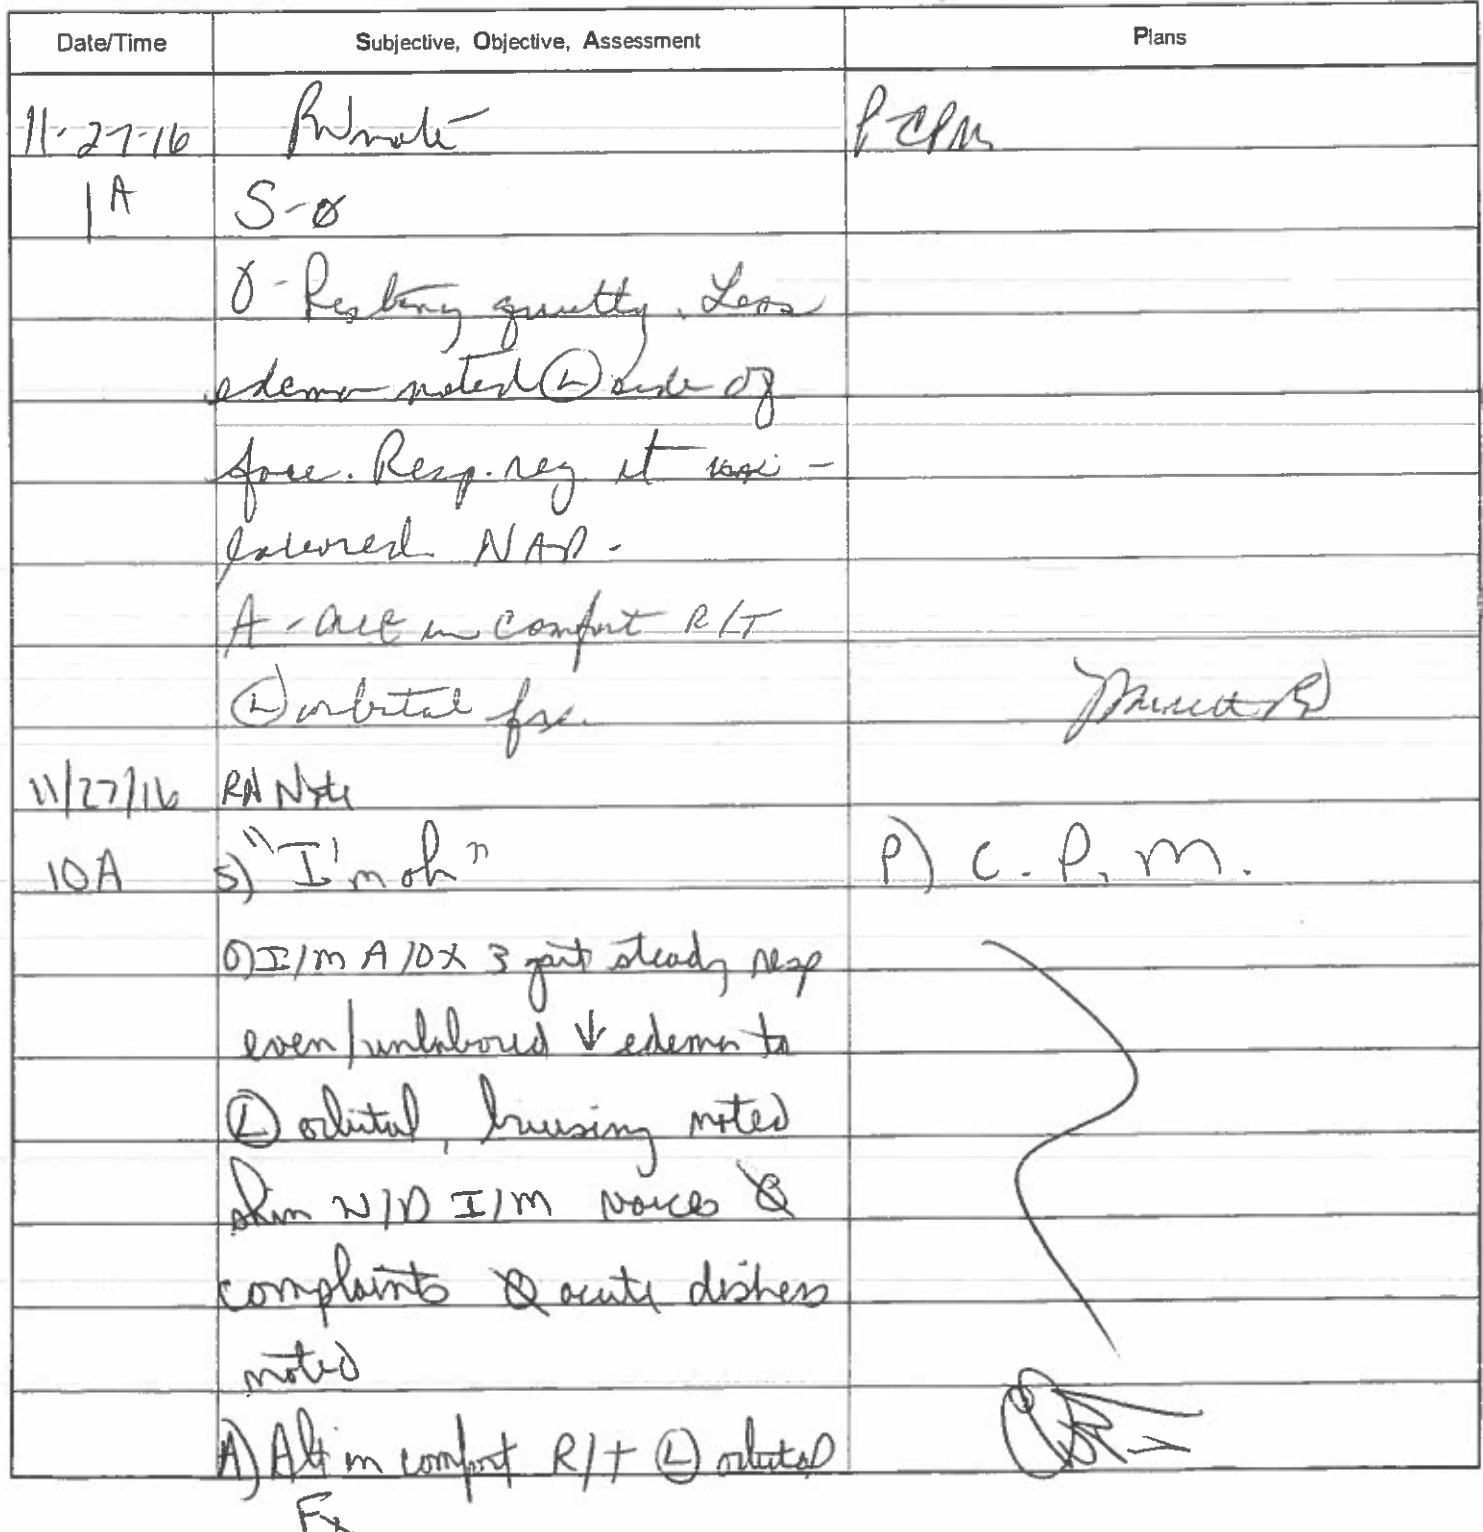 Date/Time Subjective, Objective, Assessment Plans
11-27-16 RN note P-CPM
1A S-ø
O-Resting quietly. Less
edema noted Ⓛ side of
face. Resp. reg. et un-
labored. NAD-
A-alt in comfort R/T
Ⓛ orbital fx.
11/27/16 RN Note
10A S) "I'm oh" P) C.P.M.
O) I/M A/OX 3 gait steady resp
even/unlabored ↓ edema to
Ⓛ orbital, bruising noted
skin W/D I/M voices Ø
complaints Ø acute distress
noted
A) Alt in comfort R/T Ⓛ orbital
Fx